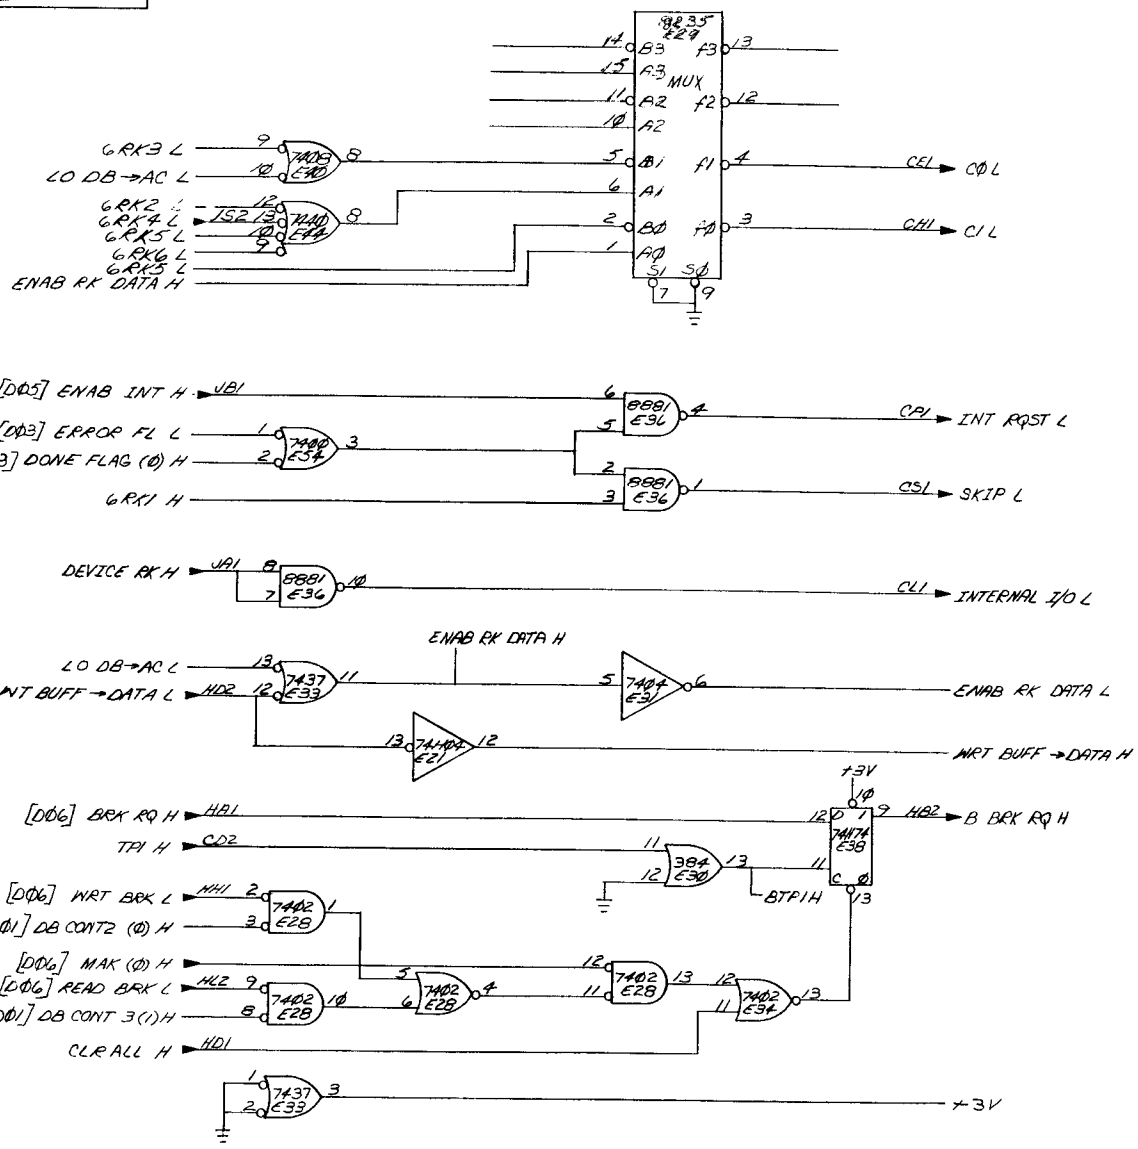 8235
E29
MUX
14 B3 f3 13
15 A3
11 B2 f2 12
10 A2
5 B1 f1 4 CE1 CØ L
6 A1
2 BØ fØ 3 CH1 C1 L
1 AØ
S1 SØ
7 9
6RK3 L 9
LO DB→AC L 10
7408
E40
8
6RK2 L 12
6RK4 L JS2 13
6RK5 L 10
6RK6 L 9
7440
E44
8
6RK5 L
ENAB RK DATA H
[DØ5] ENAB INT H JB1 6
8881
E36
4 CP1 INT RQST L
5
[DØ3] ERROR FL L 1
3] DONE FLAG (Ø) H 2
7400
E54
3
2
8881
E36
1 CS1 SKIP L
6RK1 H 3
DEVICE RK H JA1 8
7
8881
E36
10 CL1 INTERNAL I/O L
ENAB RK DATA H
LO DB→AC L 13
BUFF→DATA L HD2 12
7437
E33
11
5
7404
E31
6 ENAB RK DATA L
13
74H04
E21
12 WRT BUFF→DATA H
+3V
10
[DØ6] BRK RQ H HB1 12
D 1
74H74
E38
C Ø
9 HB2 B BRK RQ H
TP1 H CD2 11
12
384
E30
13 11
BTP1H
13
[DØ6] WRT BRK L HH1 2
Ø1] DB CONT2 (Ø) H 3
7402
E28
1
[DØ6] MAK (Ø) H 12
[DØ6] READ BRK L HL2 9
Ø1] DB CONT 3(1)H 8
7402
E28
10
5
6
7402
E28
4
11
7402
E28
13
12
11
7402
E34
13
CLR ALL H HD1
1
2
7437
E33
3 +3V